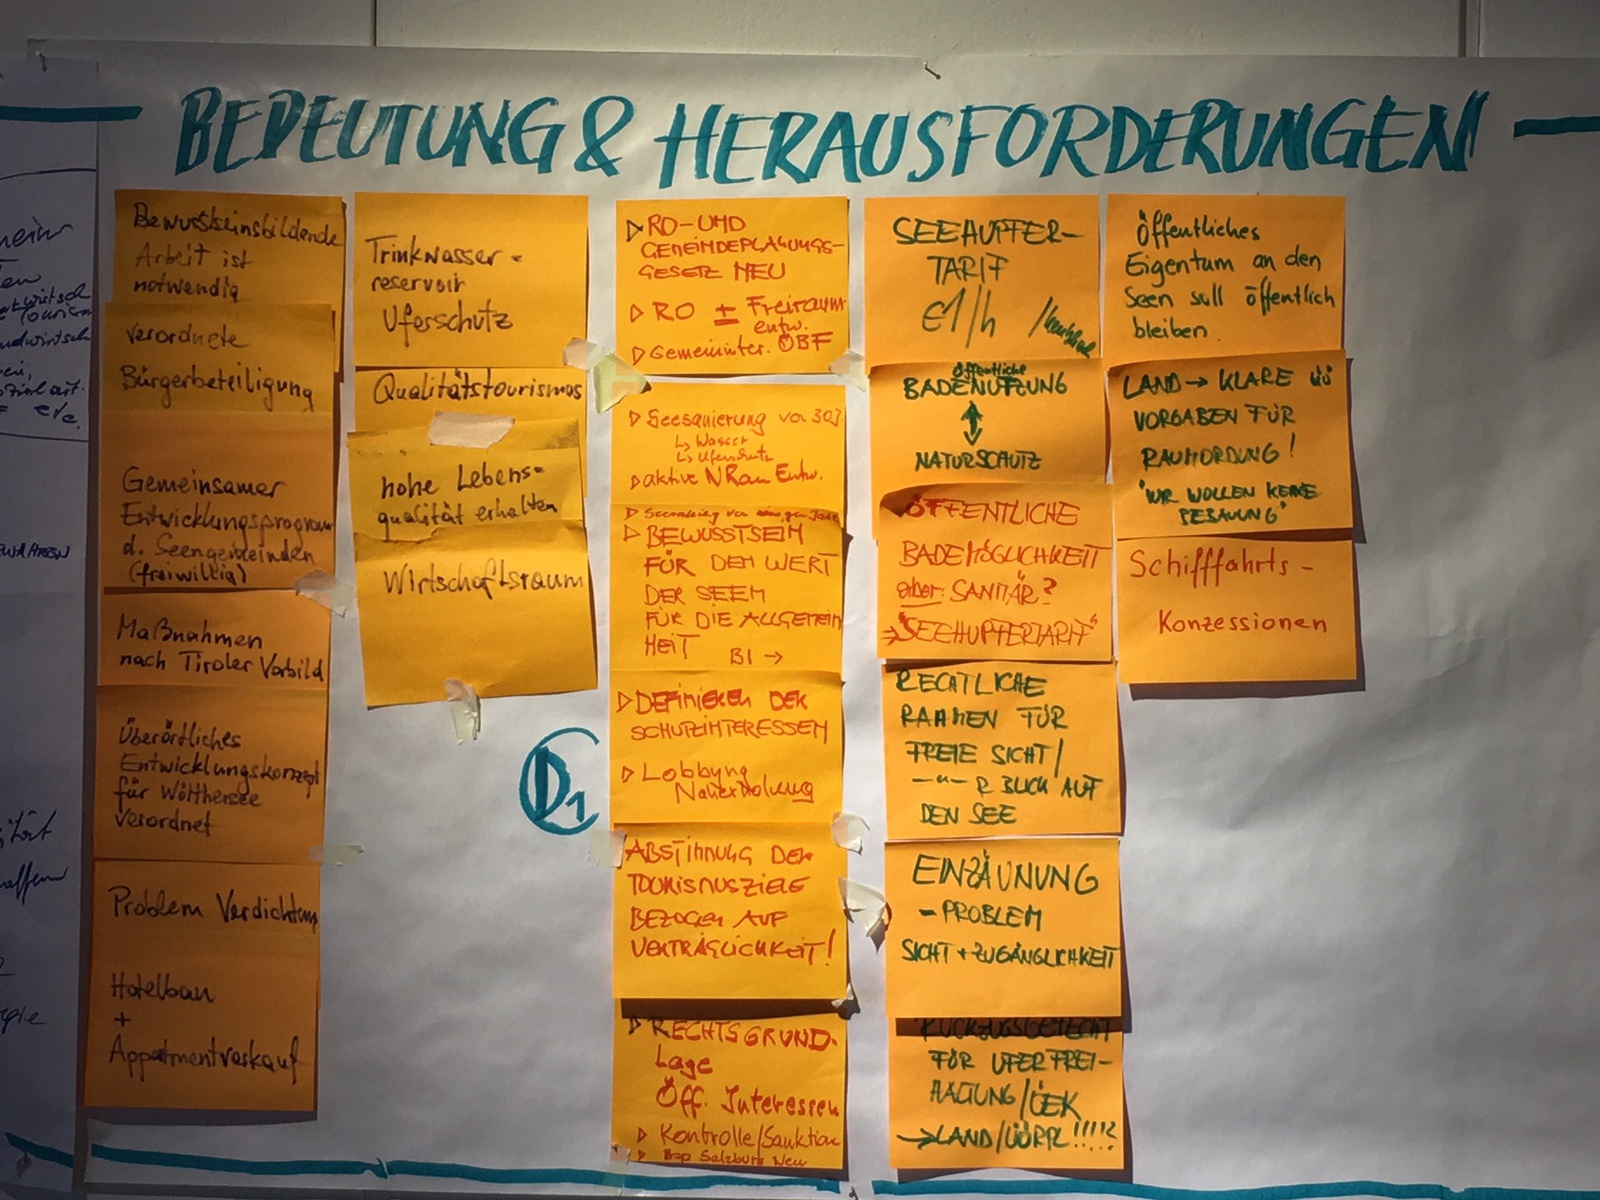 BEDEUTUNG & HERAUSFORDERUNGEN
Bewusstseinsbildende
Arbeit ist
notwendig
verordnete
Bürgerbeteiligung
Gemeinsamer
Entwicklungsprogramm
d. Seengemeinden
(freiwillig)
Maßnahmen
nach Tiroler Vorbild
Überörtliches
Entwicklungskonzept
für Wörthersee
verordnet
Problem Verdichtung
Hotelbau
+
Appartmentverkauf
Trinkwasser-
reservoir
Uferschutz
Qualitätstourismos
hohe Lebens-
qualität erhalten
Wirtschaftsraum
D1
▷ RO-UND
GEMEINDEPLANUNGS-
GESETZ NEU
▷ RO ± Freiraum
entw.
▷ Gemeininter. ÖBF
▷ Seesanierung vor 30J.
↳ Wasser
↳ Uferschutz
▷ aktive NRaum Entw.
▷ BEWUSSTSEIN
FÜR DEN WERT
DER SEEN
FÜR DIE ALLGEMEIN
HEIT BI →
▷ DEFINIEREN DER
SCHUTZINTERESSEN
▷ Lobbyng
Naherholung
ABSTIMMUNG DER
TOURISMUSZIELE
BEZOGEN AUF
VERTRÄGLICHKEIT!
▷ RECHTSGRUND-
Lage
Öff. Interessen
▷ Kontrolle/Sanktion
▷ Bsp Salzburg Neu
SEEHUPFER-
TARIF
€1/h
öffentliche
BADENUTZUNG
↕
NATURSCHUTZ
ÖFFENTLICHE
BADEMÖGLICHKEIT
aber: SANITÄR?
⇒ "SEEHUPFERTARIF"
RECHTLICHE
RAHMEN FÜR
FREIE SICHT/
—"— R BLICK AUF
DEN SEE
EINZÄUNUNG
- PROBLEM
SICHT + ZUGÄNGLICHKEIT
FÜR UFERFREI-
HALTUNG/ÖEK
→ LAND/ÜÖRPL!!!!!
Öffentliches
Eigentum an den
Seen soll öffentlich
bleiben.
LAND → KLARE ÜÖ
VORGABEN FÜR
RAUMORDUNG!
"WIR WOLLEN KEINE
BEBAUUNG"
Schifffahrts-
Konzessionen